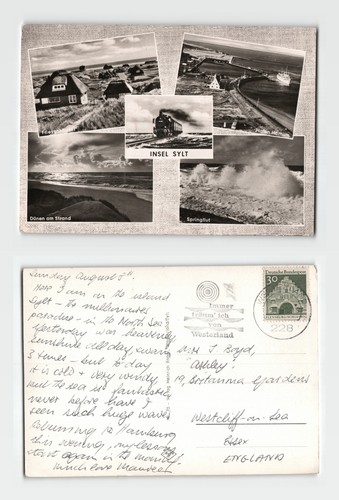 INSEL SYLT
Dünen am Strand
Springflut
Sunday August 5th
Now I am on the island
Sylt - the millionaires
paradise - in the North Sea.
Yesterday was heavenly
sunshine all day, swam
3 times - but to day
it is cold & very windy
but the sea is fantastic
never before have I
seen such huge waves
Returning to Hamburg
this evening, my lessons
start again in the morning
Much love Maureen
Immer
träum' ich
von
Westerland
Deutsche Bundespost
30
228
"Ashley"
19, Britannia Gardens
Westcliff-on-Sea
Essex
ENGLAND